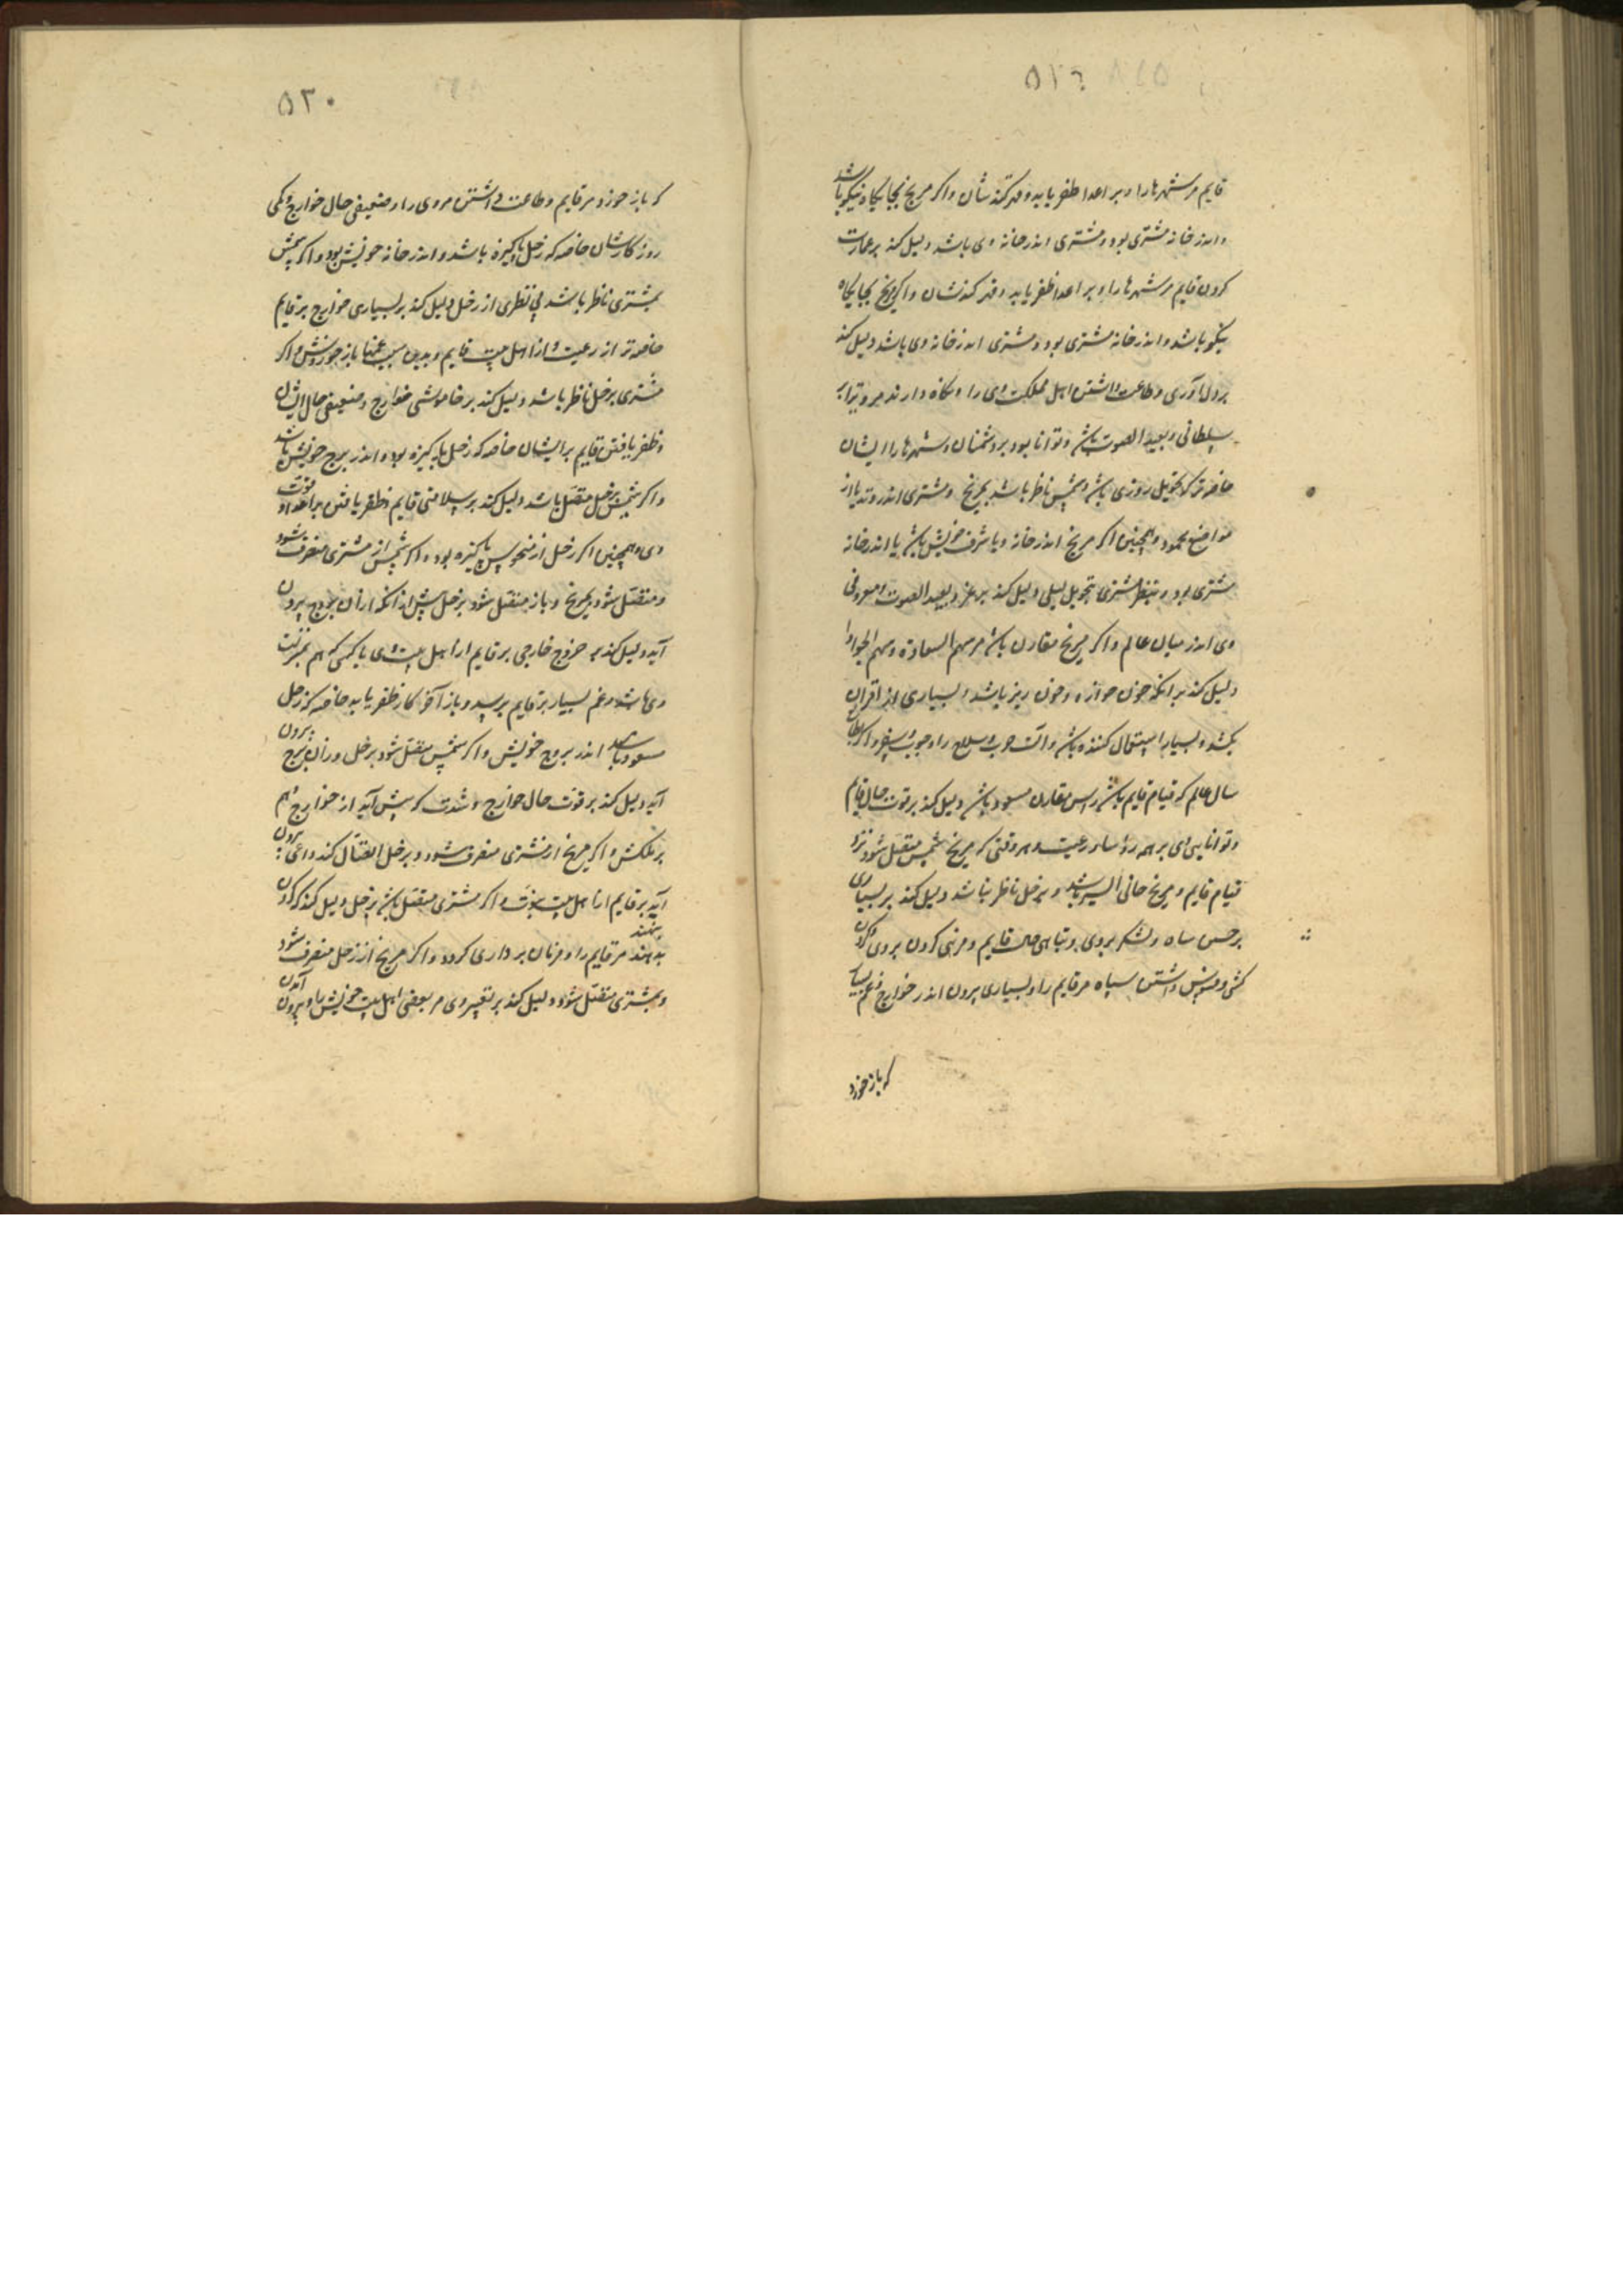 ۵۱۶
قایم مر شهرها را و بر اعدا ظفر یابد و قهر کندشان و اگر مریخ بجایگاه نیکو باشد
و اندر خانه مشتری بود و مشتری اندر خانه وی باشد دلیل کند بر عمارت
کردن قایم مر شهرها را و بر اعدا ظفر یابد و قهر کندشان و اگر مریخ بجایگاه
نیکو باشد و اندر خانه مشتری بود و مشتری اندر خانه وی باشد دلیل کند
بر دل‌آوری و طاعت داشتن اهل مملکت وی را و نگاه دارند مر
سلطانی و بعید الصوت باشد و توانا بود بر دشمنان و شهرها را ایشان
خاصه‌تر که تحویل روزی باشد و شمس ناظر باشد بمریخ و مشتری اندر وتد یا از
مواضع محمود و همچنین اگر مریخ اندر خانه و یا شرف خویش باشد یا اندر خانه
مشتری بود و بنظر مشتری بتحویل لیلی دلیل کند بر عز و بعید الصوت و معروفی
وی اندر میان عالم و اگر مریخ مقارن باشد مر سهم السعادة و سهم
دلیل کند بر آنکه خون خواره و خون ریز باشد و بسیاری از اقران
بکشد و بسیار استعمال کننده باشد و آلت حرب و سلاح را و حرب و اگر طالع
سال عالم که قیام قایم باشد راس مقارن مسعود باشد دلیل کند بر قوت حال قایم
و توانایی وی بر همه رؤسا و رعیت و هر وقتی که مریخ بشمس متصل شود نزد
قیام قایم و مریخ باشد و بزحل ناظر باشد دلیل کند بر بسیاری
سپاه و لشکر بر وی و تباهی حال قایم و کردن بر وی
داشتن سپاه مر قایم را و بسیاری بیرون اندر خوارج و غم بسیار
که باز خورد
۵۲۰
که باز خورد مر قایم و طاعت داشتن مر وی را و ضعیفی حال خوارج و کمی
روزگارشان خاصه که زحل پاکیزه باشد و اندر خانه خویش بود و اگر شمس
بمشتری ناظر باشد بی نظری از زحل دلیل کند بر بسیاری خوارج بر قایم
خاصه‌تر از رعیت و از اهل بیت قایم و بدین سبب غمها باز خوردش و اگر
مشتری بزحل ناظر باشد دلیل کند بر خاموشی خوارج و ضعیفی حال ایشان
و ظفر یافتن قایم بر ایشان خاصه که زحل پاکیزه بود و اندر برج خویش باشد
و اگر شمس بزحل متصل باشد دلیل کند بر سلامتی قایم و ظفر یافتن بر اعدا و قوت
وی و همچنین اگر زحل از نحوس پاکیزه بود و اگر شمس از مشتری منصرف شود
و متصل شود بمریخ و باز متصل شود بزحل پیش از آنکه از آن برج بیرون
آید دلیل کند بر خروج خارجی بر قایم از اهل بیت وی یا کسی که هم بمنزلت
وی باشد و غم بسیار بر قایم برسد و باز آخر کار ظفر یابد خاصه که زحل
مسعود باشد اندر بروج خویش و اگر شمس متصل شود بزحل و زان برج بیرون
آید دلیل کند بر قوت حال خوارج و شدت که پیش آید از خوارج و هم
بر ملکش و اگر مریخ از مشتری منصرف شود و بزحل اتصال کند داعی بیرون
آید بر قایم از اهل بیت نبوت و اگر مشتری متصل باشد بزحل دلیل کند که گردن
بنهند مر قایم را و فرمان برداری کردن و اگر مریخ از زحل منصرف شود
و بمشتری متصل شود دلیل کند بر تغییر وی مر بعضی اهل بیت خویش را و بیرون آمدن